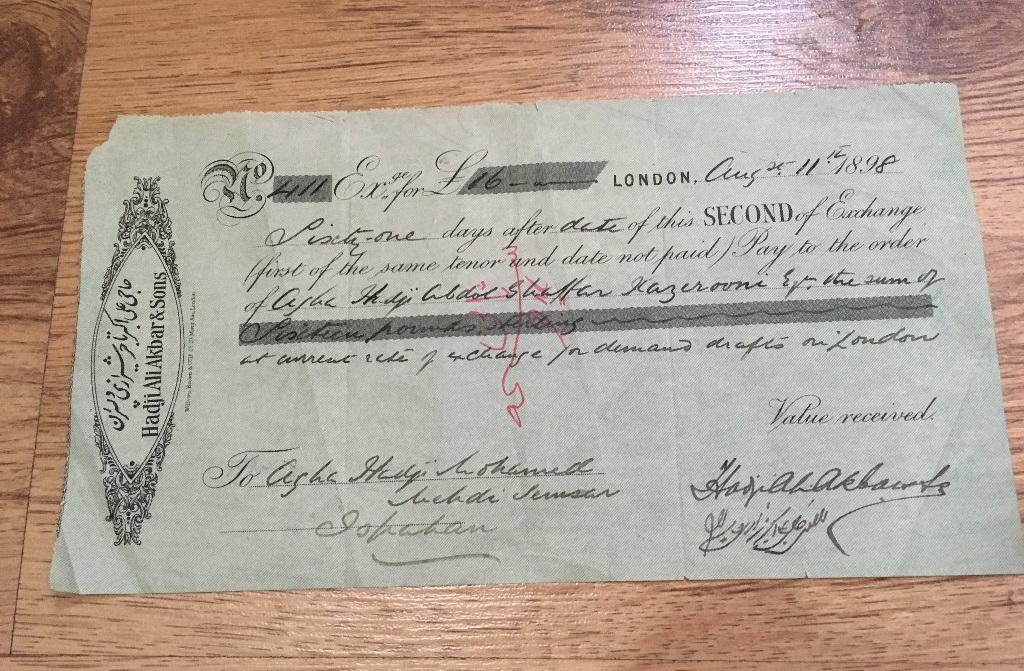 No. 411 Exge. for £ 16 LONDON. Augst 11th 1898
Sixty-one days after date of this SECOND of Exchange
(first of the same tenor und date not paid) Pay to the order
of Agha Hadji Abdol Ghaffar Kazerooni Esqr. the sum of
Sixteen pounds sterling
at current rate of exchange for demand drafts on London
Value received.
To Agha Hadji Mohamed
Mehdi Semsar
Ispahan
Hadji Ali Akbar & Sons
Hadji Ali Akbar & Sons